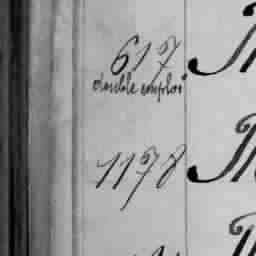 617
double emploi
1178